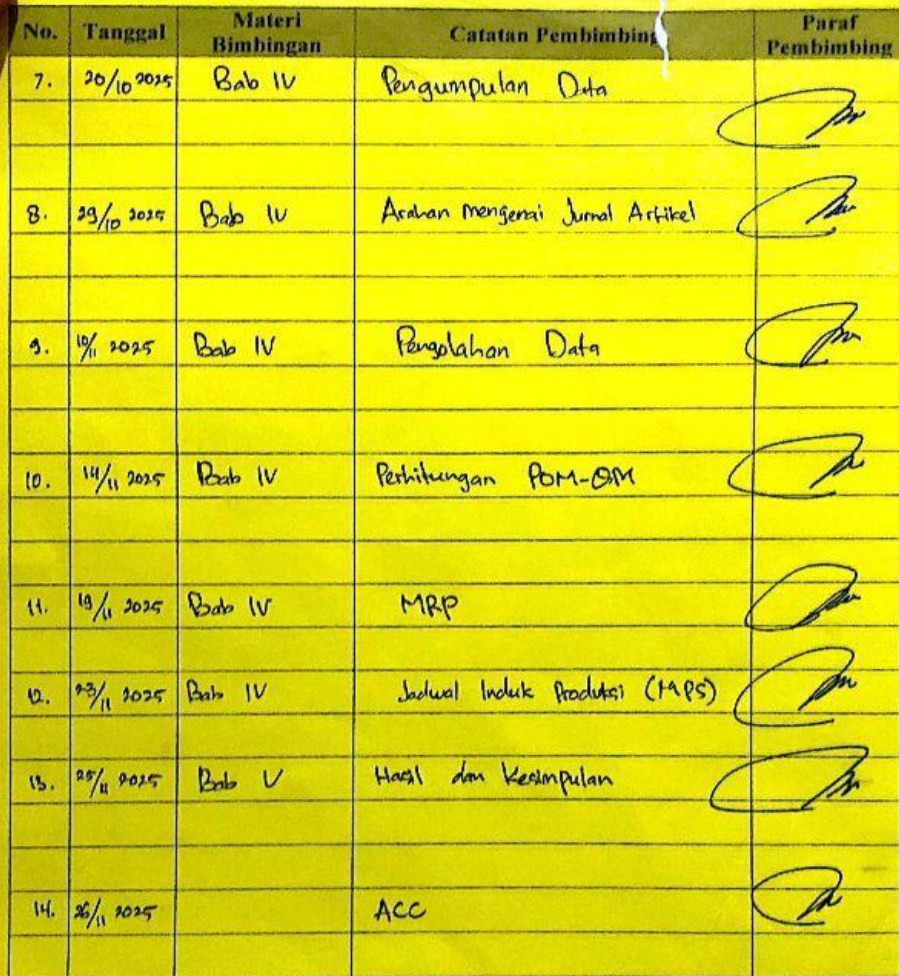 No. Tanggal Materi Bimbingan Catatan Pembimbing Paraf Pembimbing
7. 20/10 2025 Bab IV Pengumpulan Data
8. 29/10 2025 Bab IV Arahan mengenai Jurnal Artikel
9. 10/11 2025 Bab IV Pengolahan Data
10. 14/11 2025 Bab IV Perhitungan POM-QM
11. 19/11 2025 Bab IV MRP
12. 23/11 2025 Bab IV Jadwal Induk Produksi (MPS)
13. 25/11 2025 Bab V Hasil dan Kesimpulan
14. 26/11 2025 ACC